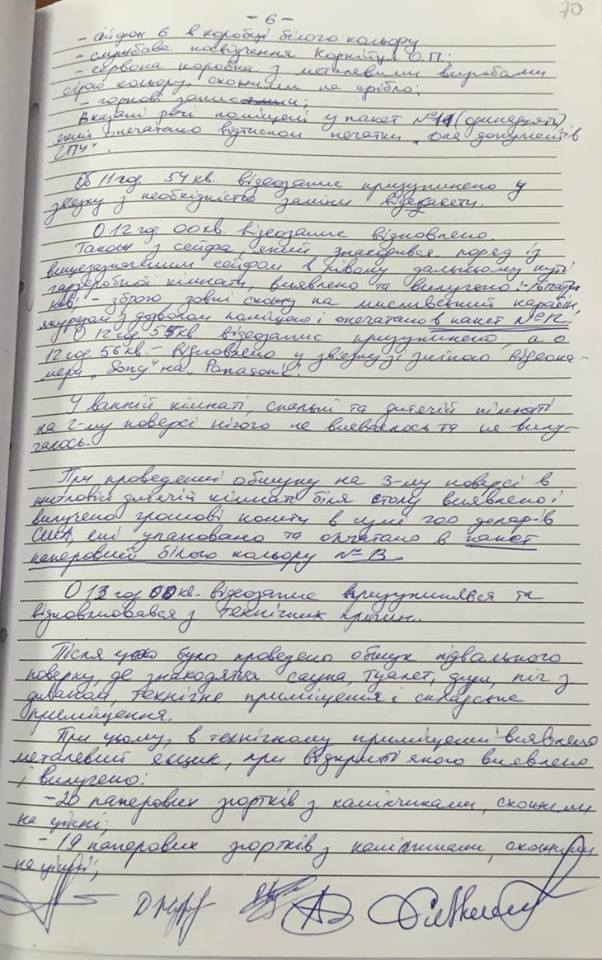 - 6 -
70
- айфон 6 в коробці білого кольору
- службове посвідчення Корнійця О.П.;
- червона коробка з металевими виробами
сірого кольору, схожими на срібло;
- чорнові записи;
Вказані речі поміщені у пакет №11 (одинадцять)
який опечатано відтиском печатки „Для документів
ГПУ".
Об 11 год 54 хв. відеозапис призупинено у
звязку з необхідністю заміни відеокасети.
О 12 год 00 хв. відеозапис відновлено.
Також з сейфа, який знаходився поряд із
вищезазначеним сейфом в лівому дальньому куті
гардеробної кімнати, виявлено та вилучено:
- зброю зовні схожу на мисливський карабін,
поміщено і опечатано в пакет №12.
О 12 год. 55 хв відеозапис призупинено, а о
12 год 56 хв - відновлено у звязку зі зміною відеока-
мери „Sony" на „Panasonic".
У ванній кімнаті, спальні та дитячій кімнаті
на 2-му поверсі нічого не виявлялось та не вилу-
чалось.
При проведенні обшуку на 3-му поверсі в
житловій дитячій кімнаті біля столу виявлено і
вилучено грошові кошти в сумі 200 доларів
США, які упаковано та опечатано в пакет
паперовий білого кольору № 13
О 13 год 00 хв. відеозапис призупинявся та
відновлювався з технічних причин.
Після цього було проведено обшук підвального
поверху, де знаходяться сауна, туалет, душ, піч з
диваном, технічне приміщення і складське
приміщення.
При цьому, в технічному приміщенні виявлено
металевий ящик, при відкритті якого виявлено
і вилучено:
- 20 паперових згортків з камінчиками, схожими
на цінні;
- 19 паперових згортків з камінчиками, схожими
на цінні;